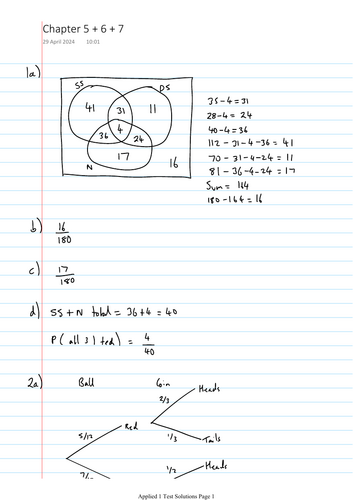 Chapter 5 + 6 + 7
29 April 2024 10:01
1a)
SS DS
41 31 11
4
36 24
17
N 16
35 - 4 = 31
28 - 4 = 24
40 - 4 = 36
112 - 31 - 4 - 36 = 41
70 - 31 - 4 - 24 = 11
81 - 36 - 4 - 24 = 17
Sum = 164
180 - 164 = 16
b) 16
180
c) 17
180
d) SS + N total = 36 + 4 = 40
P( all 3 | ted ) = 4
40
2a) Ball Coin
Heads
2/3
Red
5/12 1/3 Tails
1/2 Heads
7/12
Applied 1 Test Solutions Page 1